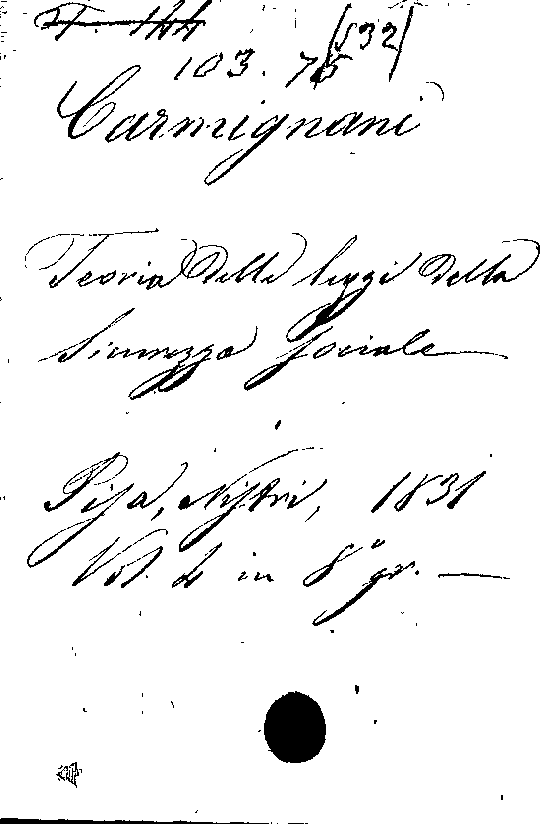 T. 144
103. 75 (532)
Carmignani
Teoria delle leggi della
Sicurezza Sociale
Pisa, Nistri, 1831
Vol. 4 in 8° gr. —